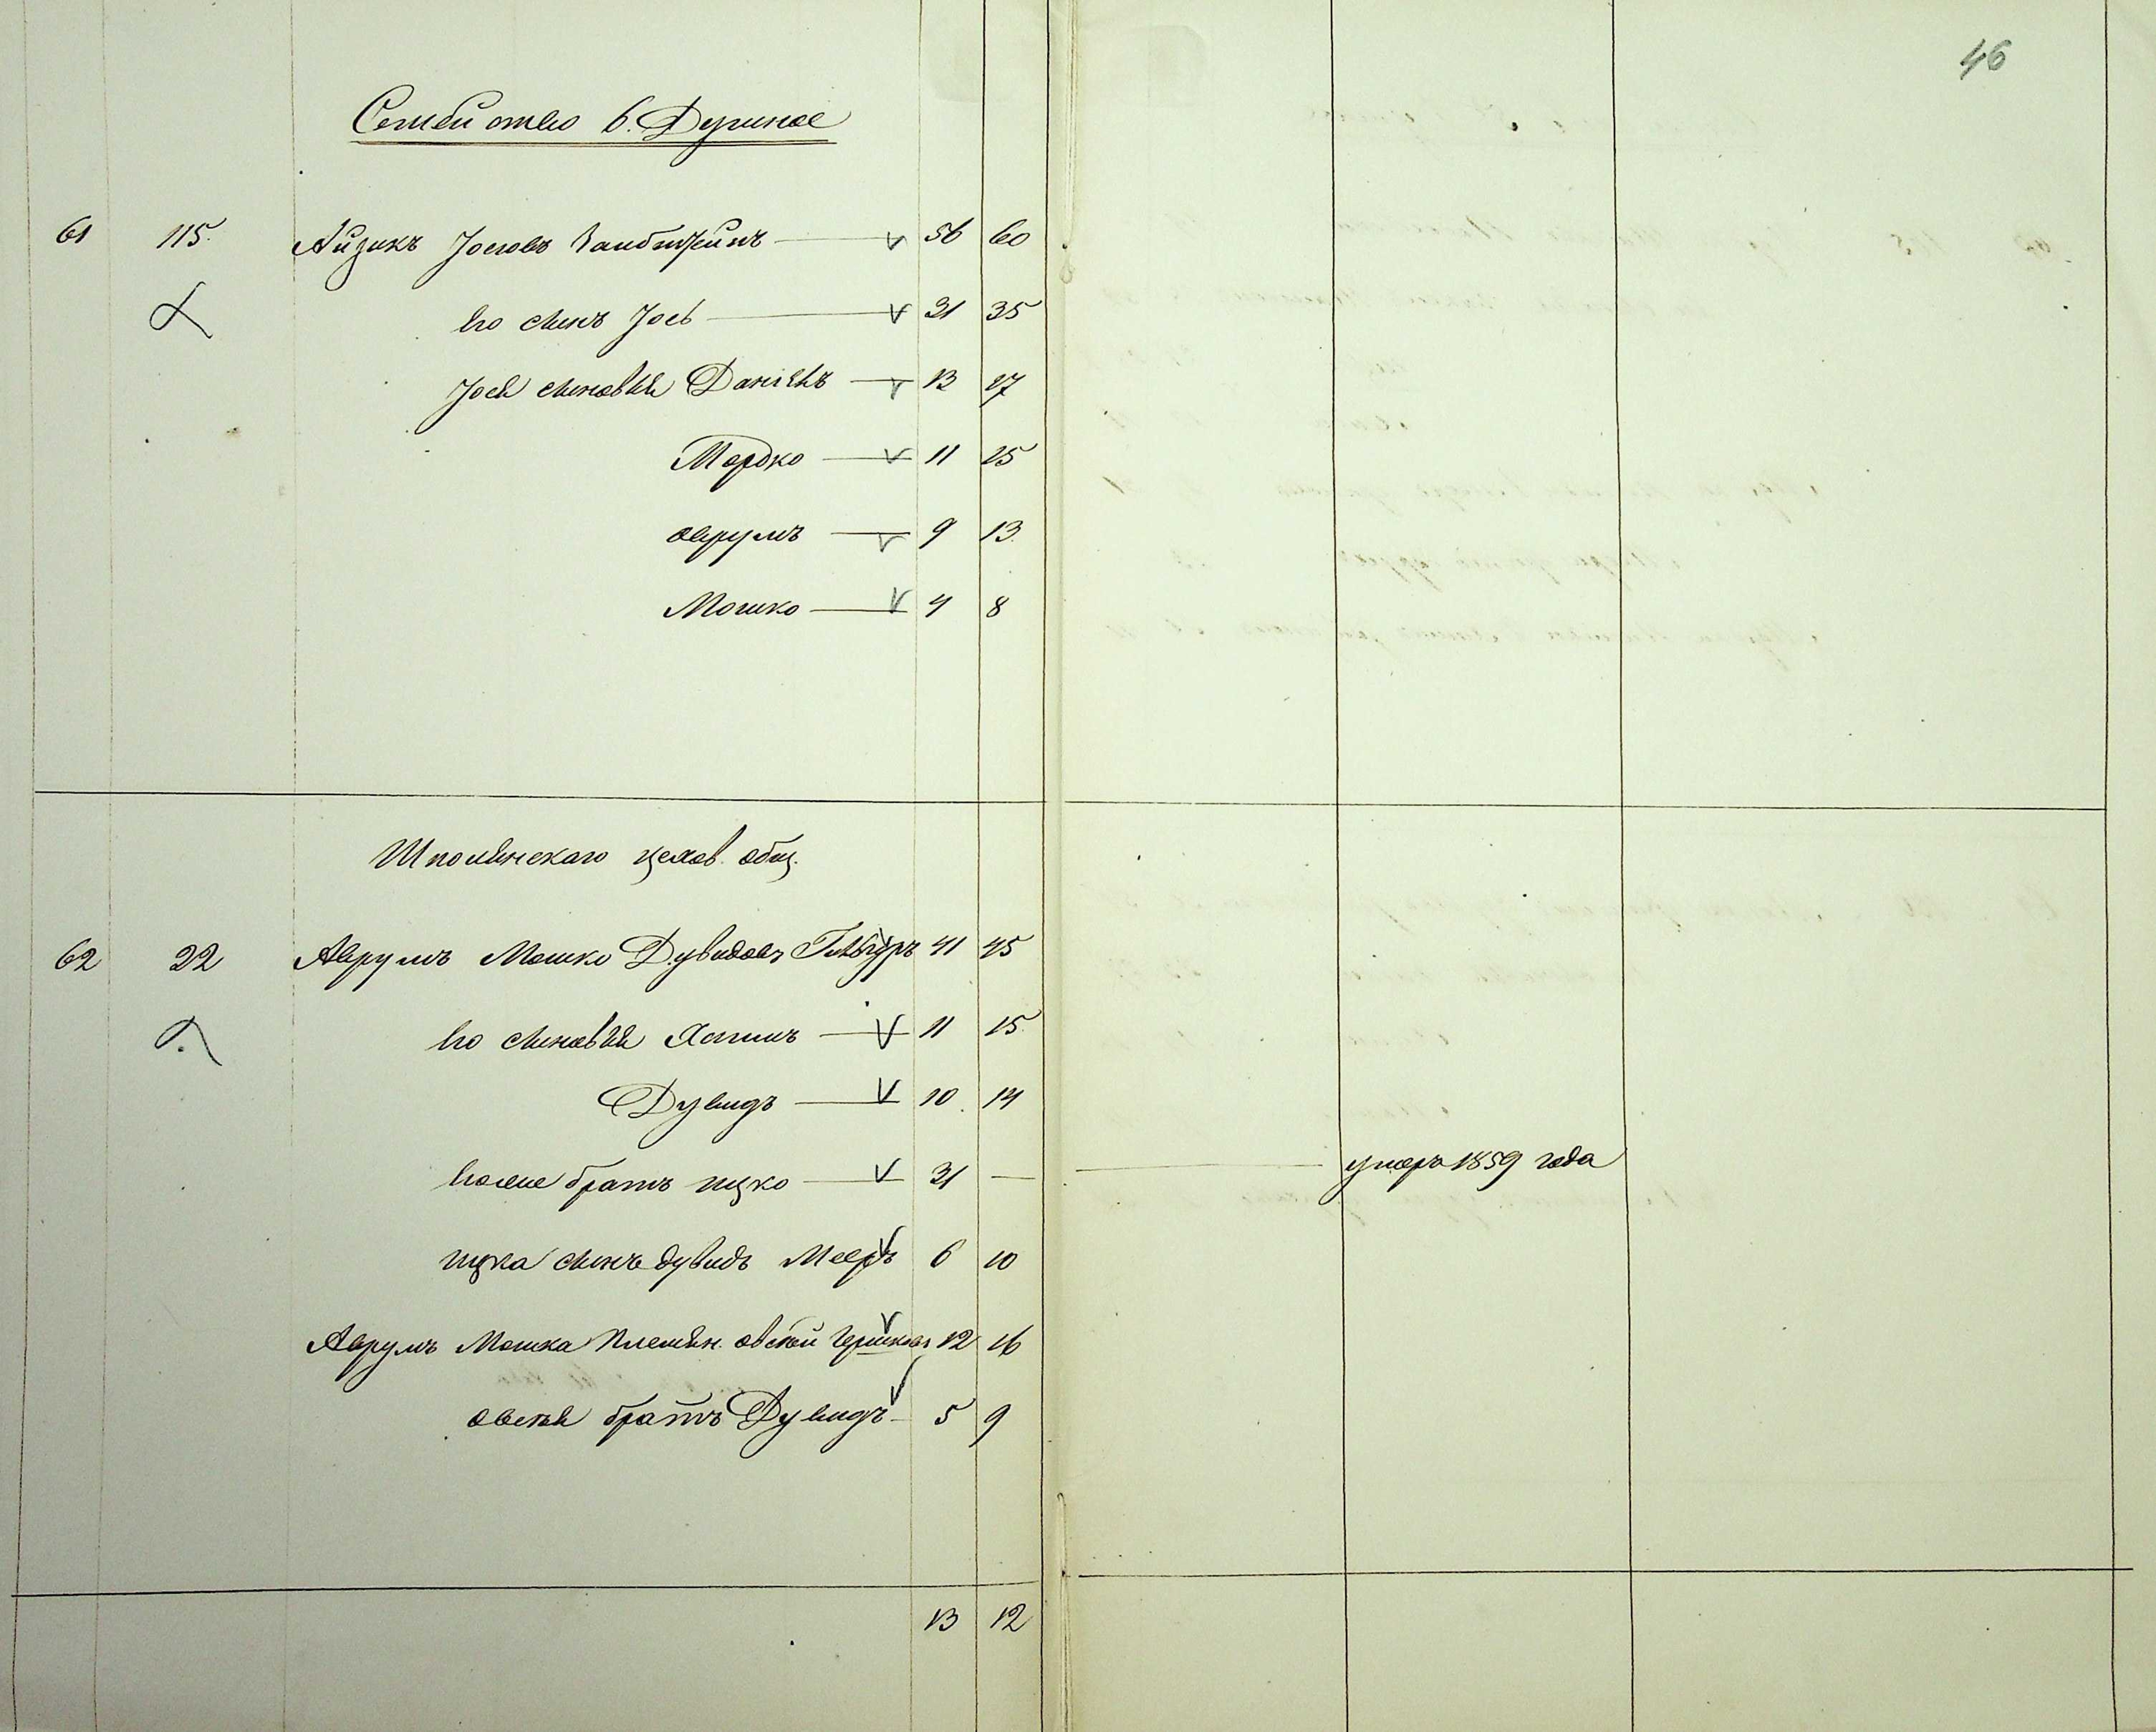 46
Семейство 6. Душное
61 115. Айзикъ Іосіовъ 56 60
Его сынъ Іось 31 35
Іося сыновья Даніель 13 17
Мордко 11 15
Аврумъ 9 13
Мошко 4 8
Шполянскаго цехов. общ.
62 22 Аврумъ Мошко Дувидовъ 41 45
Его сыновья 11 15
Дувидъ 10 14
братъ Ицко 31 — умеръ 1859 года
Ицка сынъ Дувидъ Мееръ 6 10
Аврумъ Мошка племян. Овсей 12 16
Овсея братъ Дувидъ 5 9
13 12